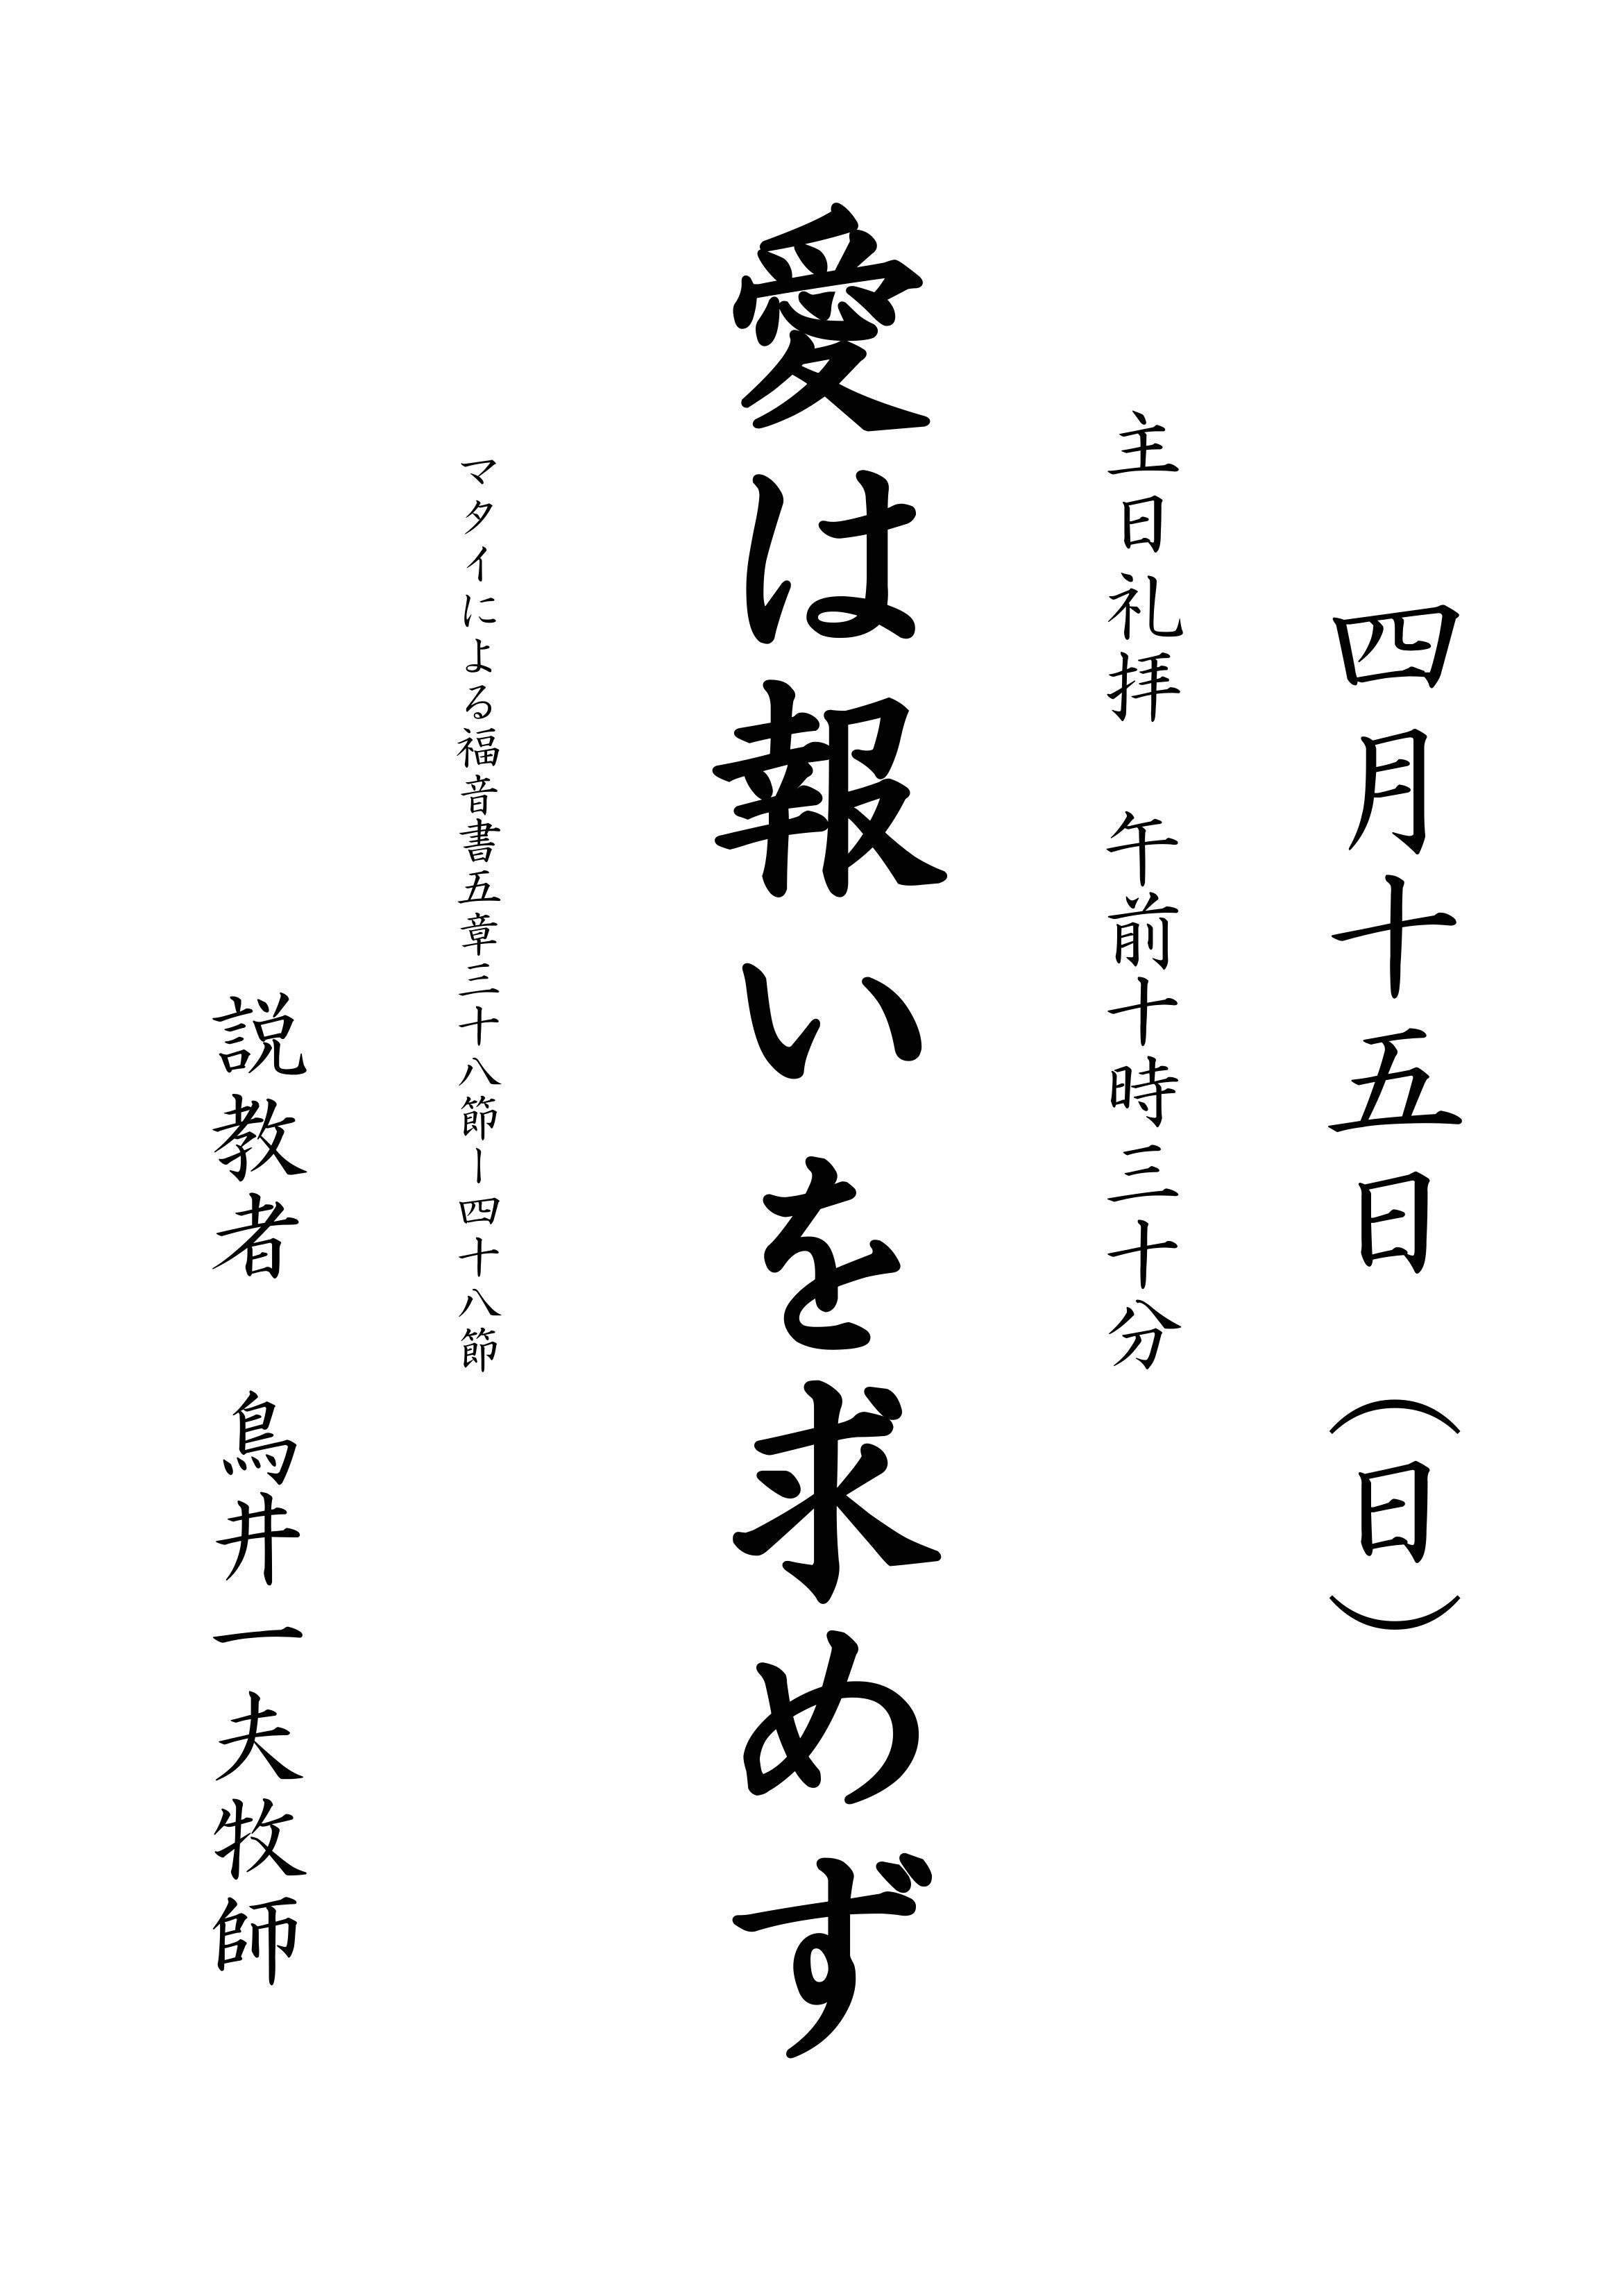 四月十五日（日）
主日礼拝　午前十時三十分
愛は報いを求めず
マタイによる福音書五章三十八節ー四十八節
説教者　鳥井一夫牧師